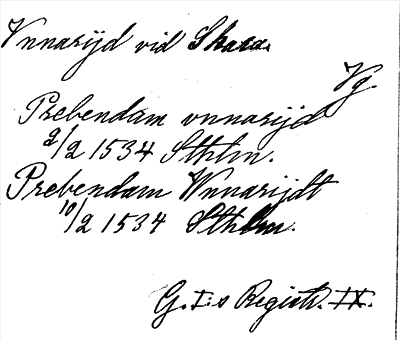 Vnnarijd vid Skara.
Vg.
Prebendam vnnarijd
2/2 1534 Sthlm.
Prebendam Vnnarijdt
10/2 1534 Sthlm.
G. I:s Registr. IX.